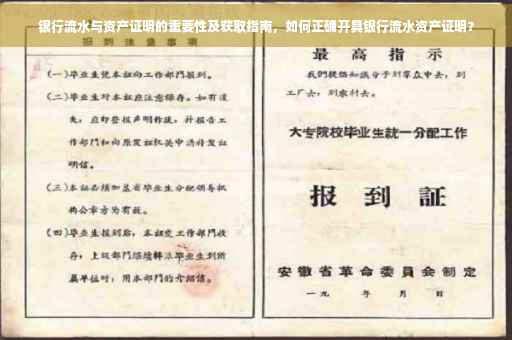 银行流水与资产证明的重要性及获取指南，如何正确开具银行流水资产证明？
报到注意事项
(一)毕业生凭本证向工作部门报到。
(二)毕业生对本证应注意保存。如有遗
失，应即登报声明作废，并报告工
作部门和向原发证机关申请补发证
明信。
(三)本证必须加盖省毕业生分配领导机
构公章方为有效。
(四)毕业生报到后，本证交工作部门收
存；上级部门继续转派毕业生到所
属单位时，用本部门的介绍信。
最高指示
我们提倡知识分子到群众中去，到
工厂去，到农村去。
大专院校毕业生统一分配工作
报到证
安徽省革命委员会制定
一九 年 月 日